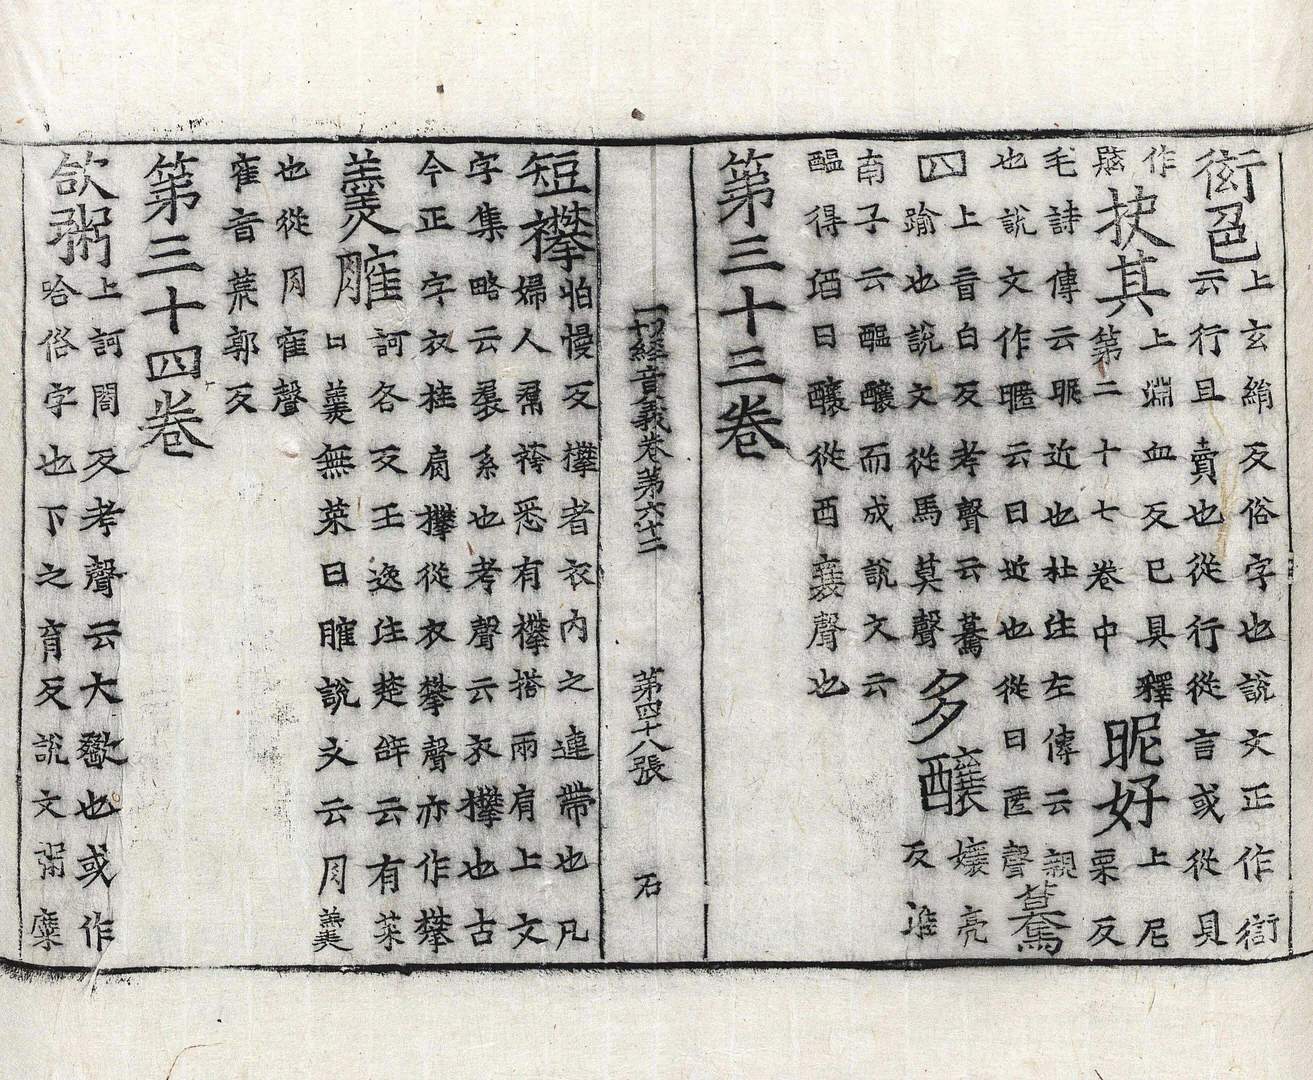 衒邑
上玄絹反俗字也說文正作衙
云行且賣也從行從言或從貝
作
抉其
上淵血反已具釋
第二十七卷中
昵好
上尼
栗反
毛詩傳云昵近也杜注左傳云親
也說文作暱云日近也從日匿聲
驀
四
上音白反考聲云驀
踰也說文從馬莫聲
多釀
孃亮
反淮
南子云醞釀而成說文云
醞得酒曰釀從酉襄聲也
第三十三卷
一切經音義卷第六十二 第四十八張 石
短襻
怕慢反襻者衣內之連帶也凡
婦人帬袴悉有襻搭兩肩上文
字集略云裠系也考聲云衣襻也古
今正字衣桂肩襻從衣攀聲亦作襻
羹臛
訶各反王逸注楚辭云有菜
曰羹無菜曰臛說文云肉羹
也從肉隺聲
隺音荒郭反
第三十四卷
欱粥
上訶閤反考聲云大歠也或作
哈俗字也下之育反說文粥糜